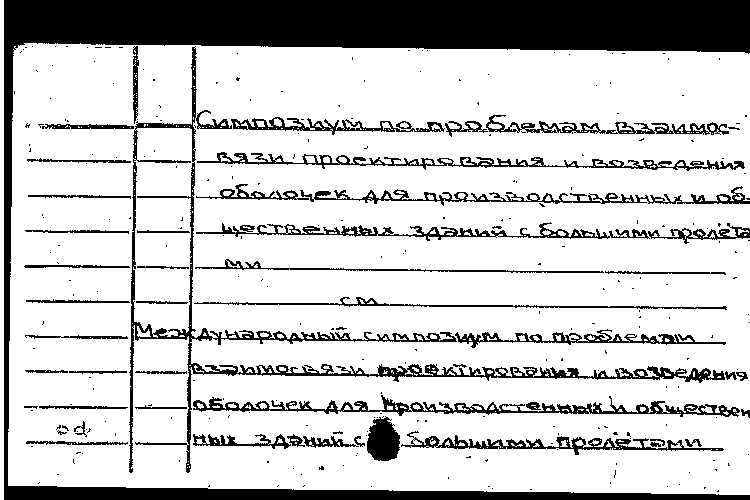 Симпозиум по проблемам взаимос-
вязи проектирования и возведения
оболочек для производственных и об-
щественных зданий с большими пролёта
ми
см.
Международный симпозиум по проблемам
взаимосвязи проектирования и возведения
оболочек для производстенных и обществен
od ных зданий с большими пролётами